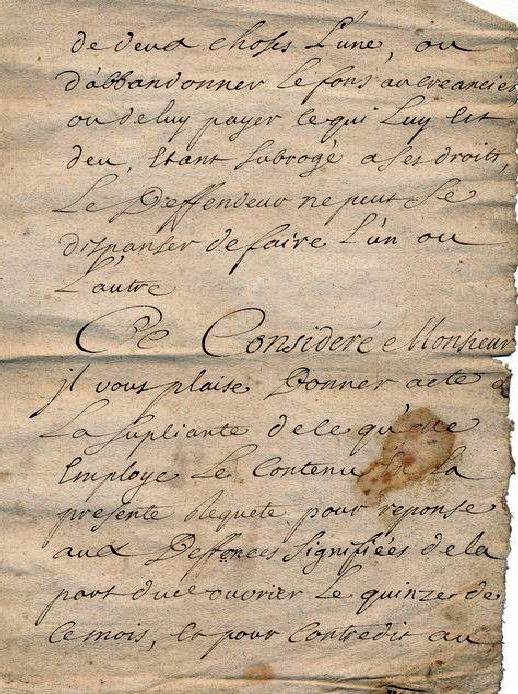 de deux choses L'une, ou
d'abbandonner Le fons au creancier
ou de luy payer ce qui Luy Est
deu, Etant subrogé a ses droits,
Le Deffendeur ne peut se
dispanser de faire L'un ou
L'autre
Ce Consideré Monsieur
jl vous plaise Donner acte a
La supliante de ce qu'elle
Employe Le Contenu la
presente Requete pour reponse
aux Deffences signifiées de la
part ouvrier Le quinze de
ce mois, Et pour Contredit au